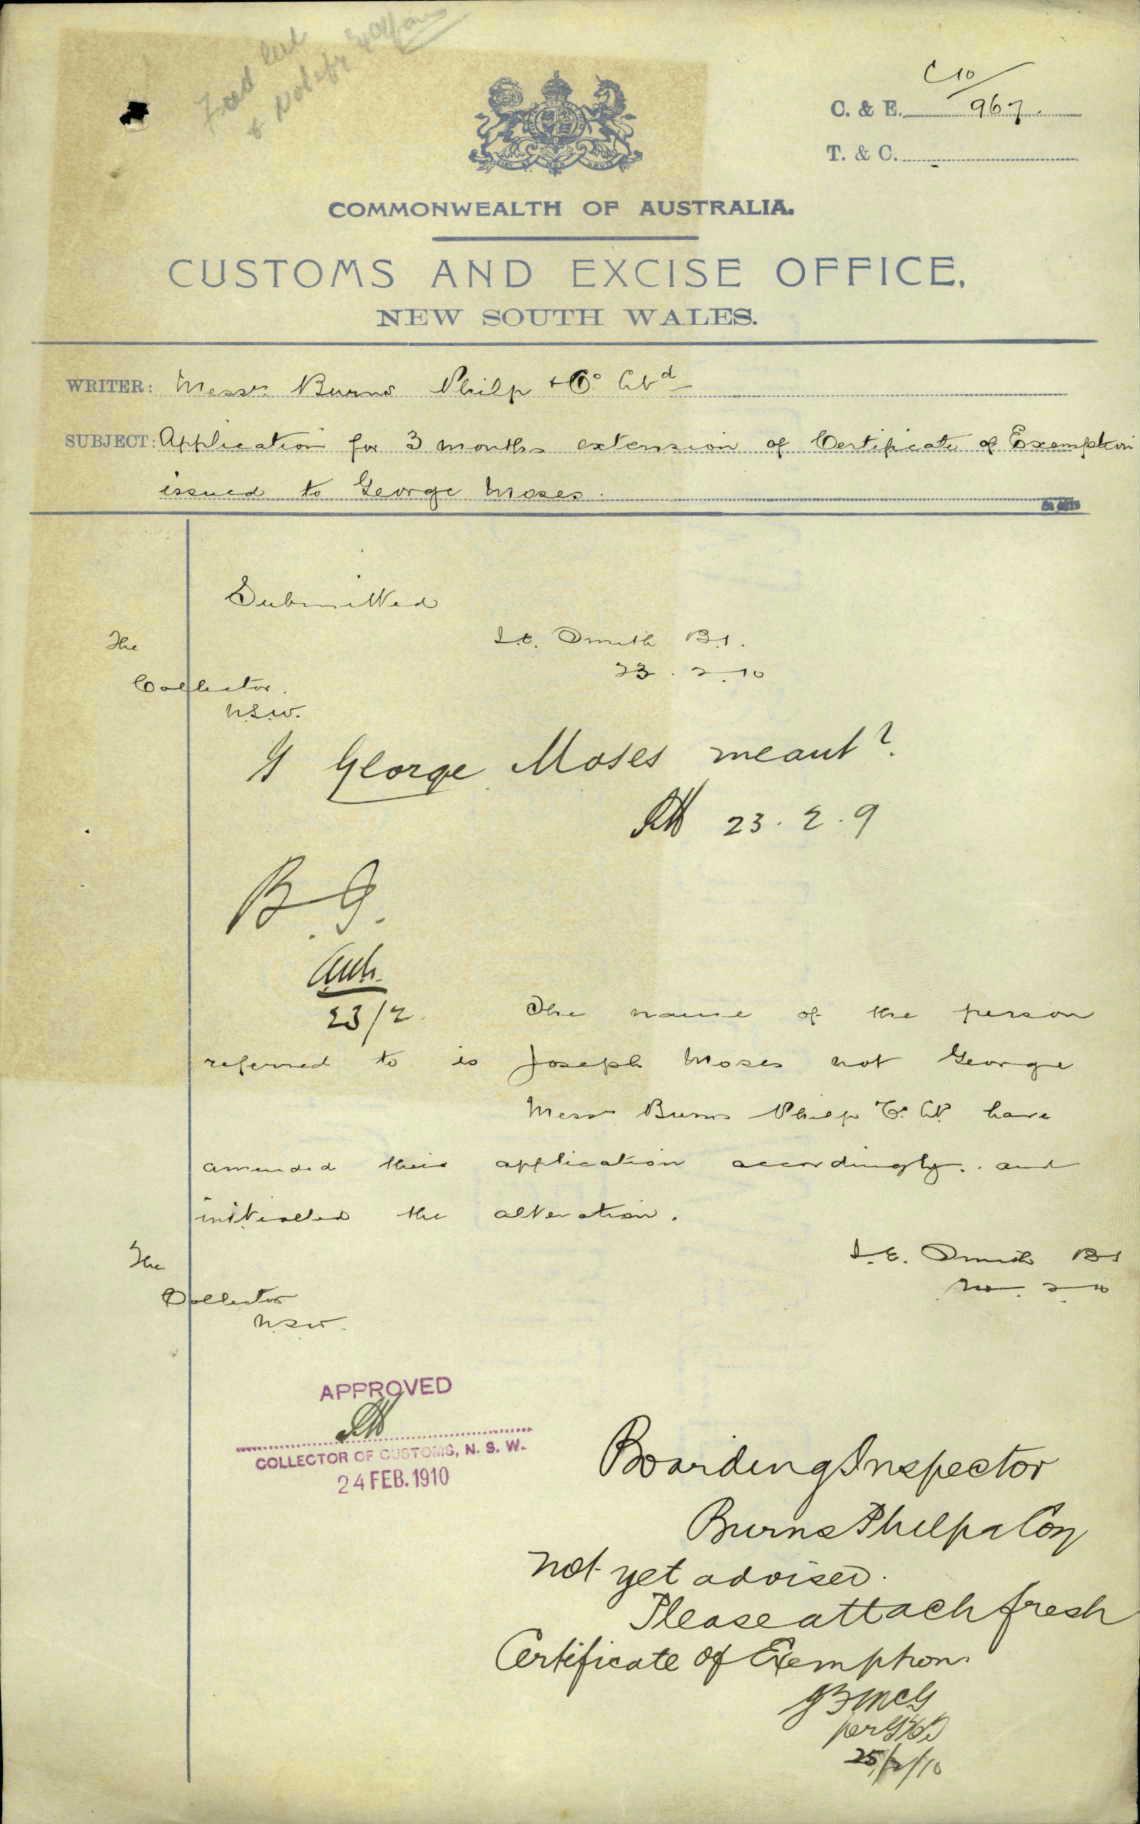 C10/
C. & E. 967.
T. & C.
COMMONWEALTH OF AUSTRALIA.
CUSTOMS AND EXCISE OFFICE,
NEW SOUTH WALES.
WRITER: Messrs Burns Philp & Co Ltd
SUBJECT: Application for 3 months extension of Certificate of Exemption
issued to George Moses.
Submitted
Smith B.I.
23.2.10
The
Collector.
N.S.W.
Is George Moses meant?
23.2.9
B.I.
23/2
The name of the person
referred to is Joseph Moses not George
Messrs Burns Philp Co Ltd have
amended their application accordingly. and
initialled the alteration.
The
Collector
N.S.W.
Smith BI
2.10
APPROVED
COLLECTOR OF CUSTOMS, N. S. W.
24 FEB. 1910
Boarding Inspector
Burns Philp & Coy
not yet advised.
Please attach fresh
Certificate of Exemption.
JBMcG
per
25/2/10